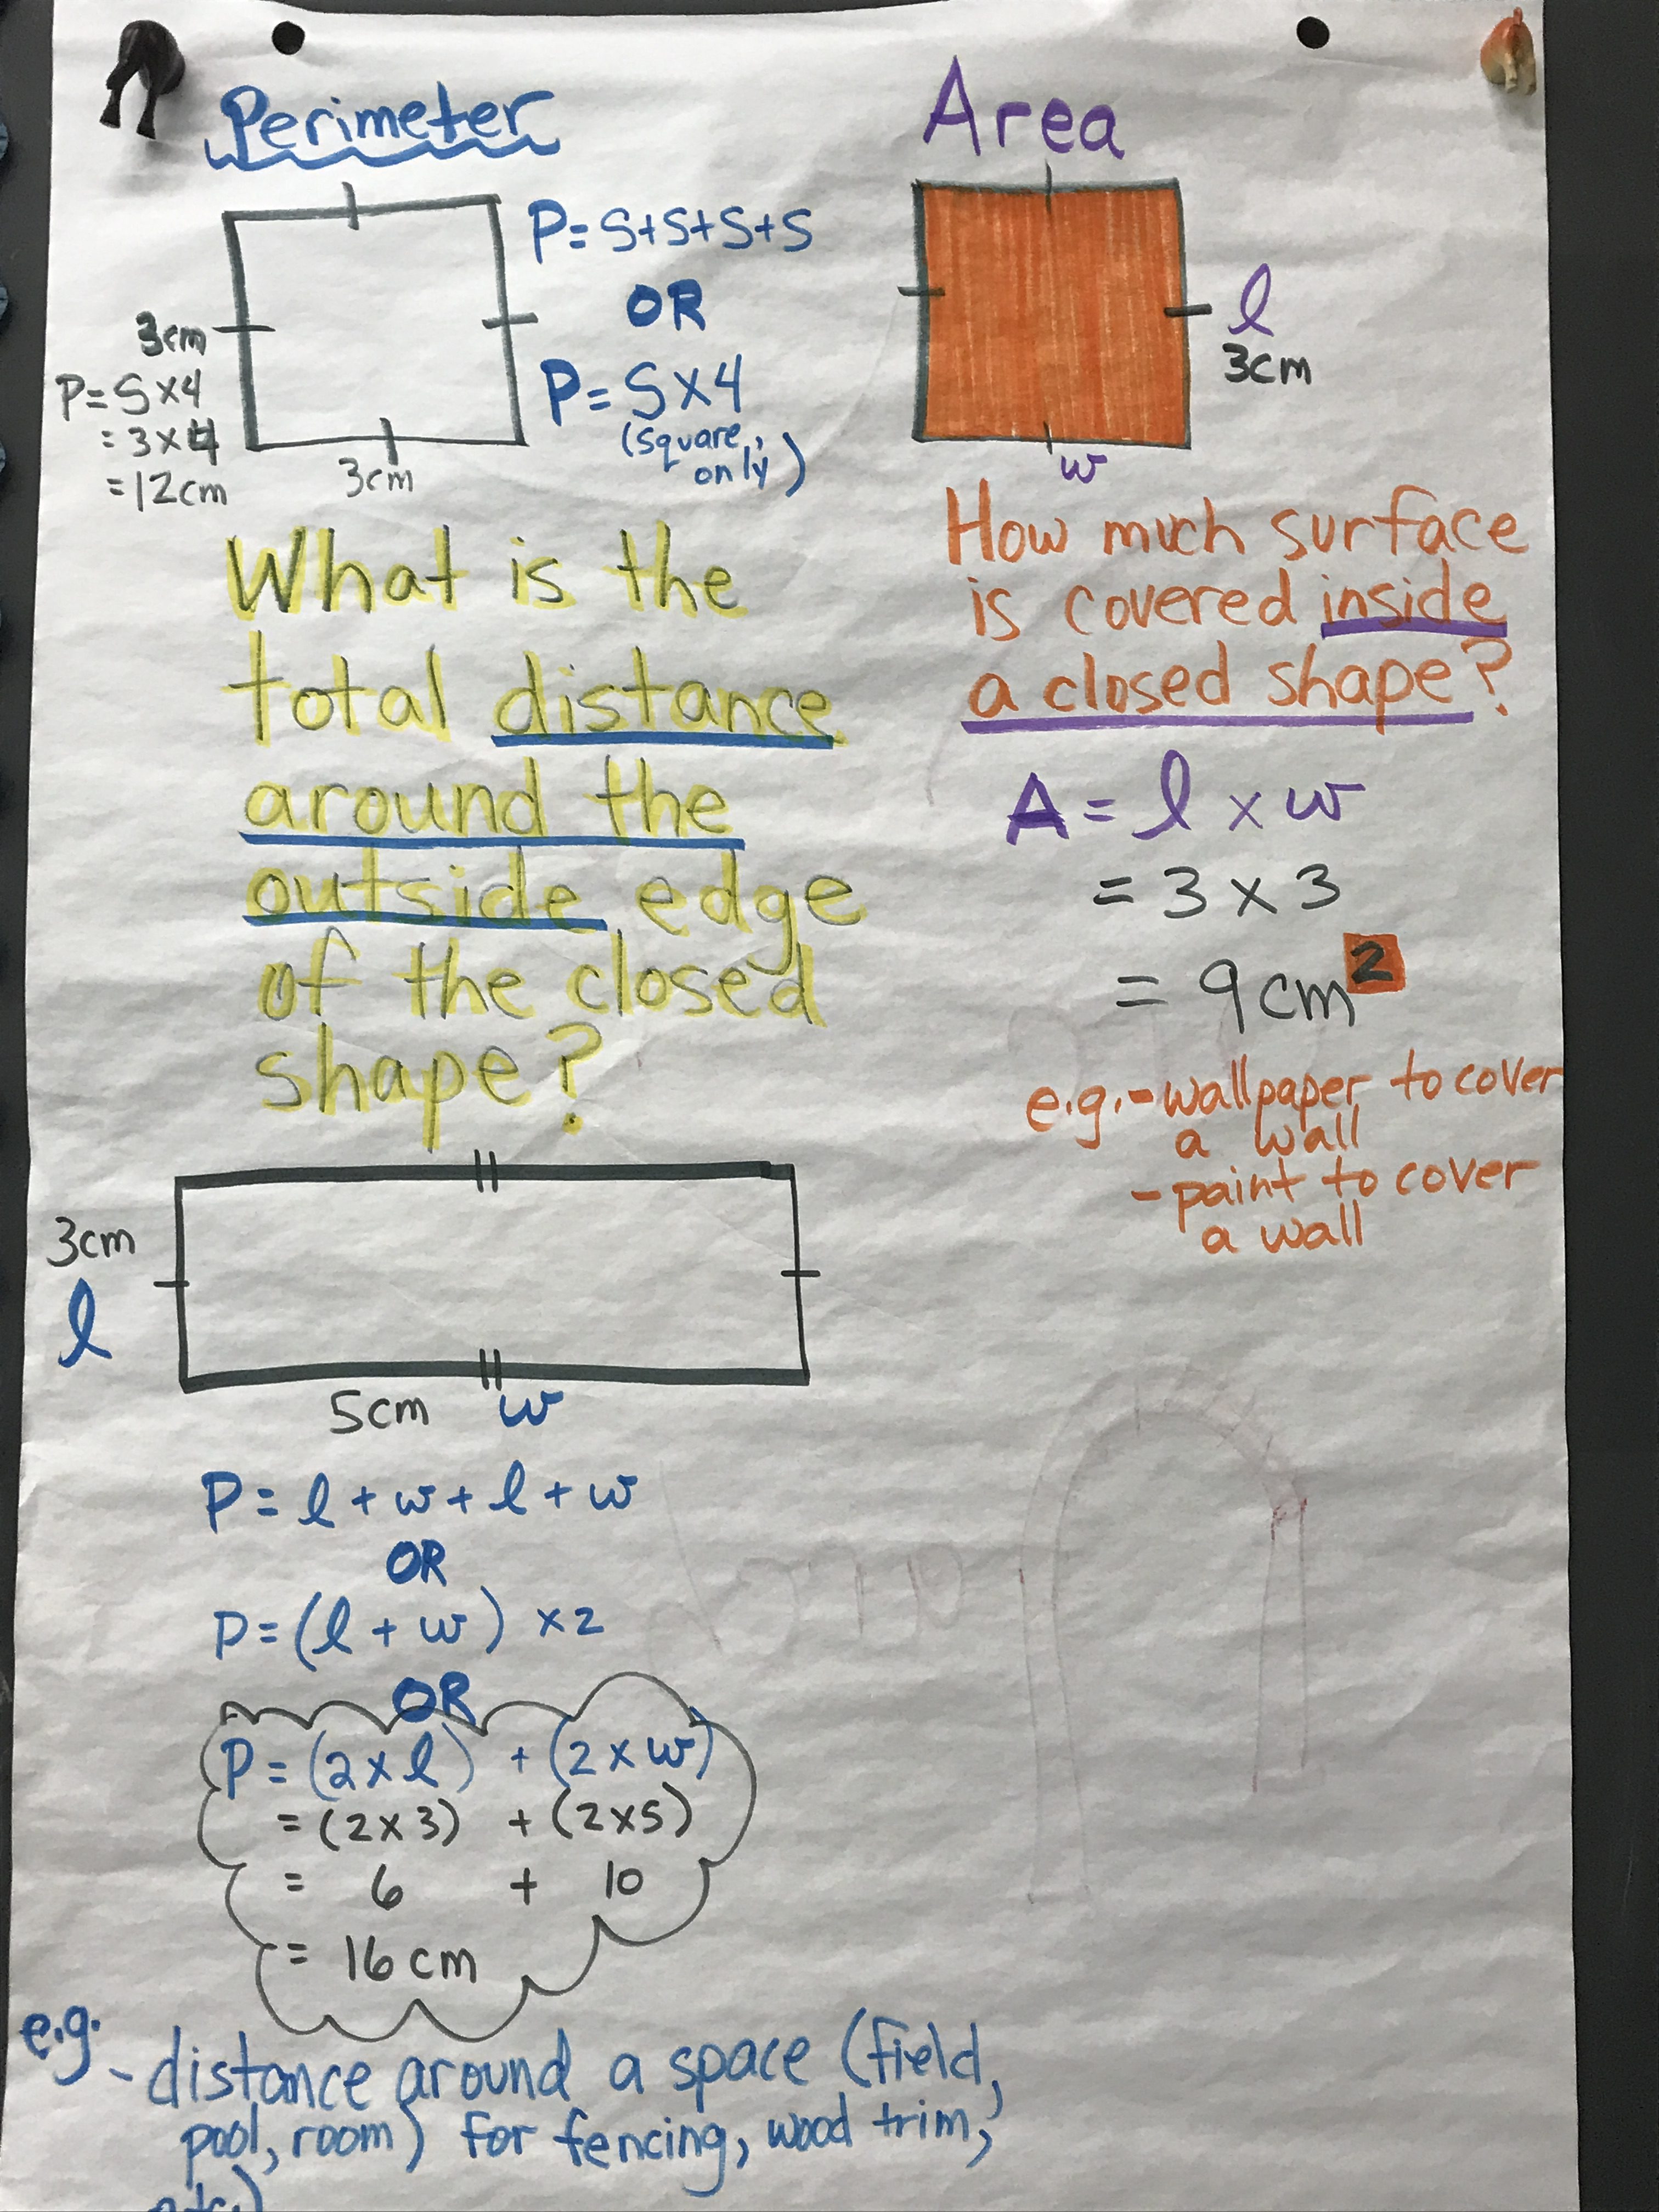 Perimeter
P = S+S+S+S
OR
P = S x 4
(square only)
3cm
P = S x 4
= 3 x 4
= 12cm
3cm
What is the
total distance
around the
outside edge
of the closed
shape?
3cm
l
5cm w
P = l + w + l + w
OR
P = (l + w) x 2
OR
P = (2 x l) + (2 x w)
= (2 x 3) + (2 x 5)
= 6 + 10
= 16 cm
e.g. - distance around a space (field,
pool, room) for fencing, wood trim,
etc.)
Area
l
3cm
w
How much surface
is covered inside
a closed shape?
A = l x w
= 3 x 3
= 9cm²
e.g. - wallpaper to cover
a wall
- paint to cover
a wall